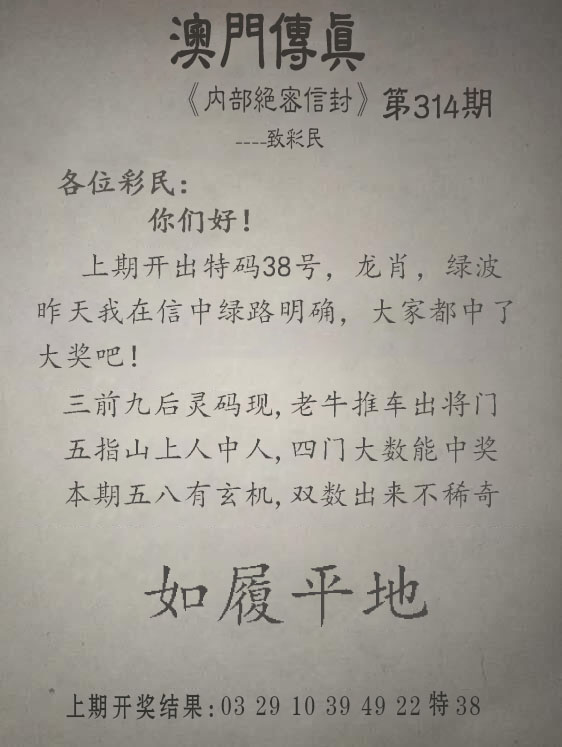 澳門傳眞
《内部絕密信封》第314期
----致彩民
各位彩民:
你们好!
上期开出特码38号,龙肖,绿波
昨天我在信中绿路明确,大家都中了
大奖吧!
三前九后灵码现,老牛推车出将门
五指山上人中人,四门大数能中奖
本期五八有玄机,双数出来不稀奇
如履平地
上期开奖结果:03 29 10 39 49 22 特 38